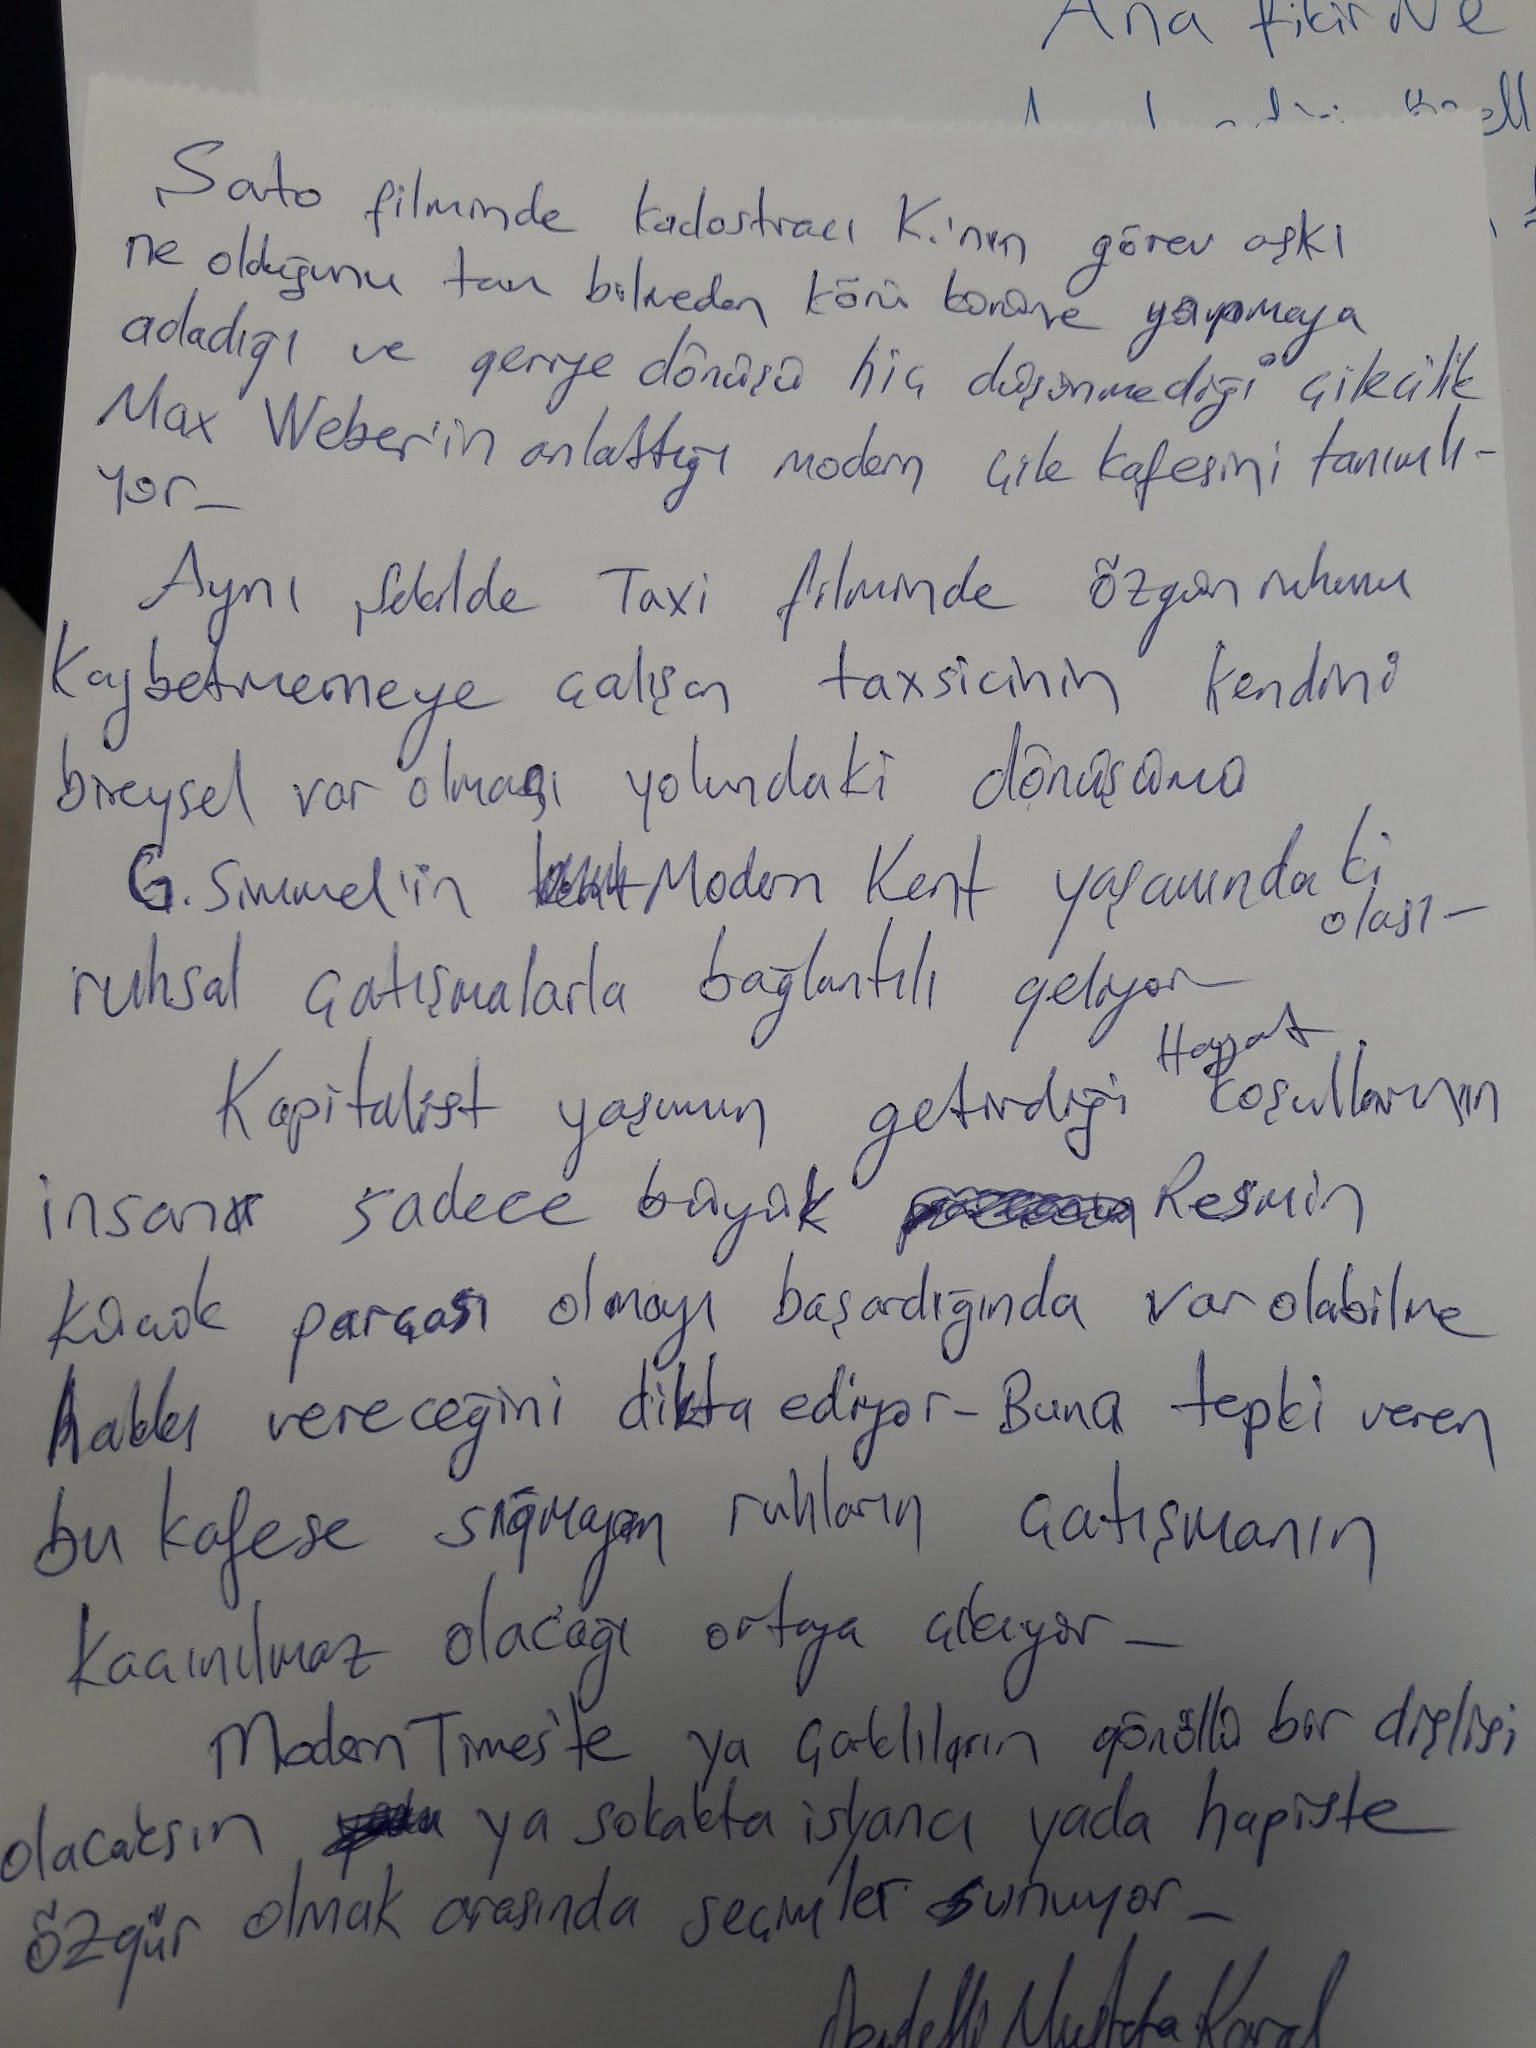 Ana fikir Ne
Şato filminde kadostracı K.'nın görev aşkı
ne olduğunu tam bilmeden körü körüne yapmaya
adadığı ve geriye dönüşü hiç düşünmediği çilecilik
Max Weber'in anlattığı modern çile kafesini tanımlı-
yor_
Aynı şekilde Taxi filminde özgün ruhunu
Kaybetmemeye çalışan taxsicinin kendini
bireysel var olması yolundaki dönüşümü
G. Simmel'in Modern Kent yaşamındaki
olası-
ruhsal çatışmalarla bağlantılı geliyor_
Hayat
Kapitalist yaşamın getirdiği koşullarının
insana sadece büyük Resmin
küçük parçası olmayı başardığında var olabilme
hakkı vereceğini dikta ediyor_ Buna tepki veren
bu kafese sığmayan ruhların çatışmanın
kaçınılmaz olacağı ortaya çıkıyor_
Modern Times'te ya çarklıların gönüllü bir dişlisi
olacaksın ya sokakta isyancı yada hapiste
özgür olmak arasında seçimler sunuyor_
Mustafa